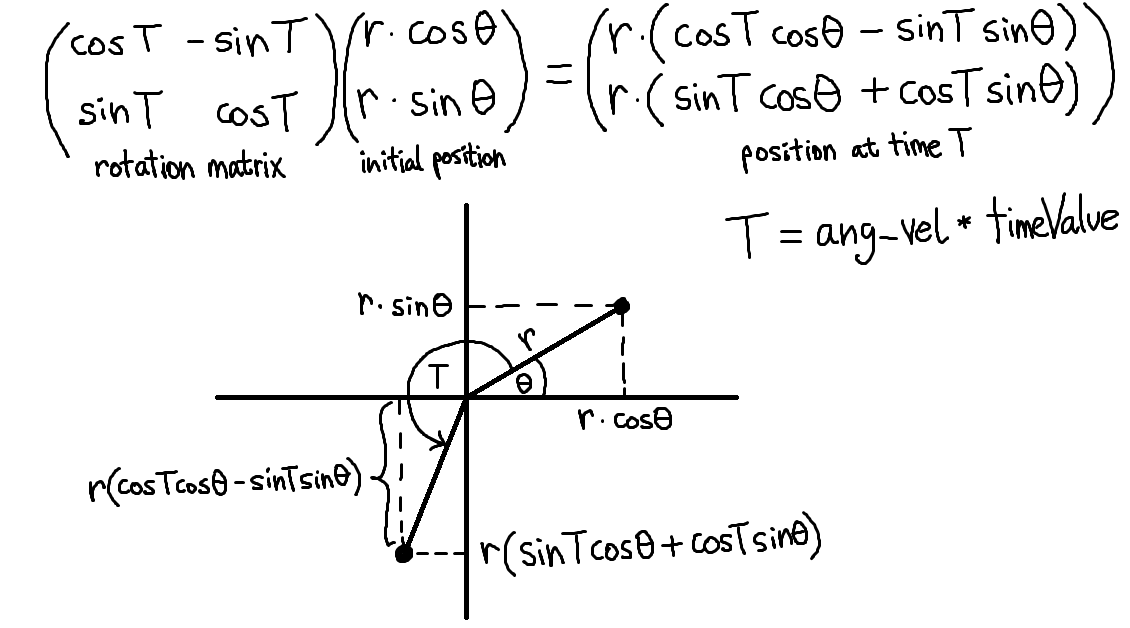 (cosT -sinT) (r·cosθ) = (r·(cosT cosθ - sinT sinθ))
(sinT cosT) (r·sinθ) (r·(sinT cosθ + cosT sinθ))
rotation matrix initial position position at time T
T = ang_vel * timeValue
r·sinθ
r
T θ
r·cosθ
r(cosTcosθ-sinTsinθ)
r(sinTcosθ+cosTsinθ)